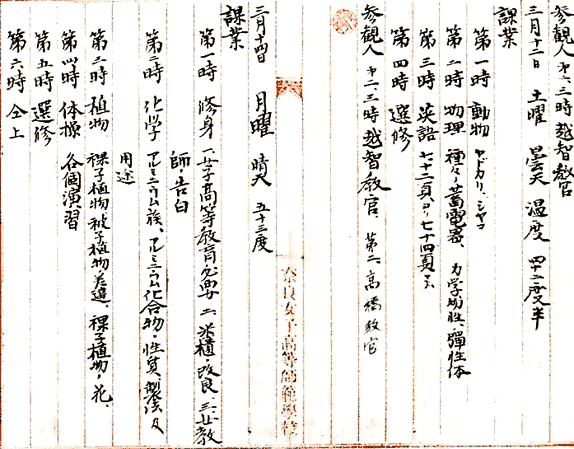 参観人 第二、三時 越智教官
三月十二日 土曜 曇天 温度 四十二度半
課業
第一時 動物 ヤドカリ、シヤコ
第二時 物理 種々ノ蓄電器、力学 物性、弾性体
第三時 英語 七十二頁ヨリ七十四頁マデ
第四時 選修
参観人 第二、三時 越智教官、第二、高橋教官
奈良女子高等師範學校
三月十四日 月曜 晴天 五十三度
課業
第一時 修身 一、女子高等教育必要 二、米櫃ノ改良 三、女教
師ノ告白
第二時 化学 アルミニウム族、アルミニウム化合物ノ性質、製法及
用途
第三時 植物 裸子植物被子植物ノ差違、裸子植物ノ花、
第四時 体操 各個演習
第五時 選修
第六時 仝上